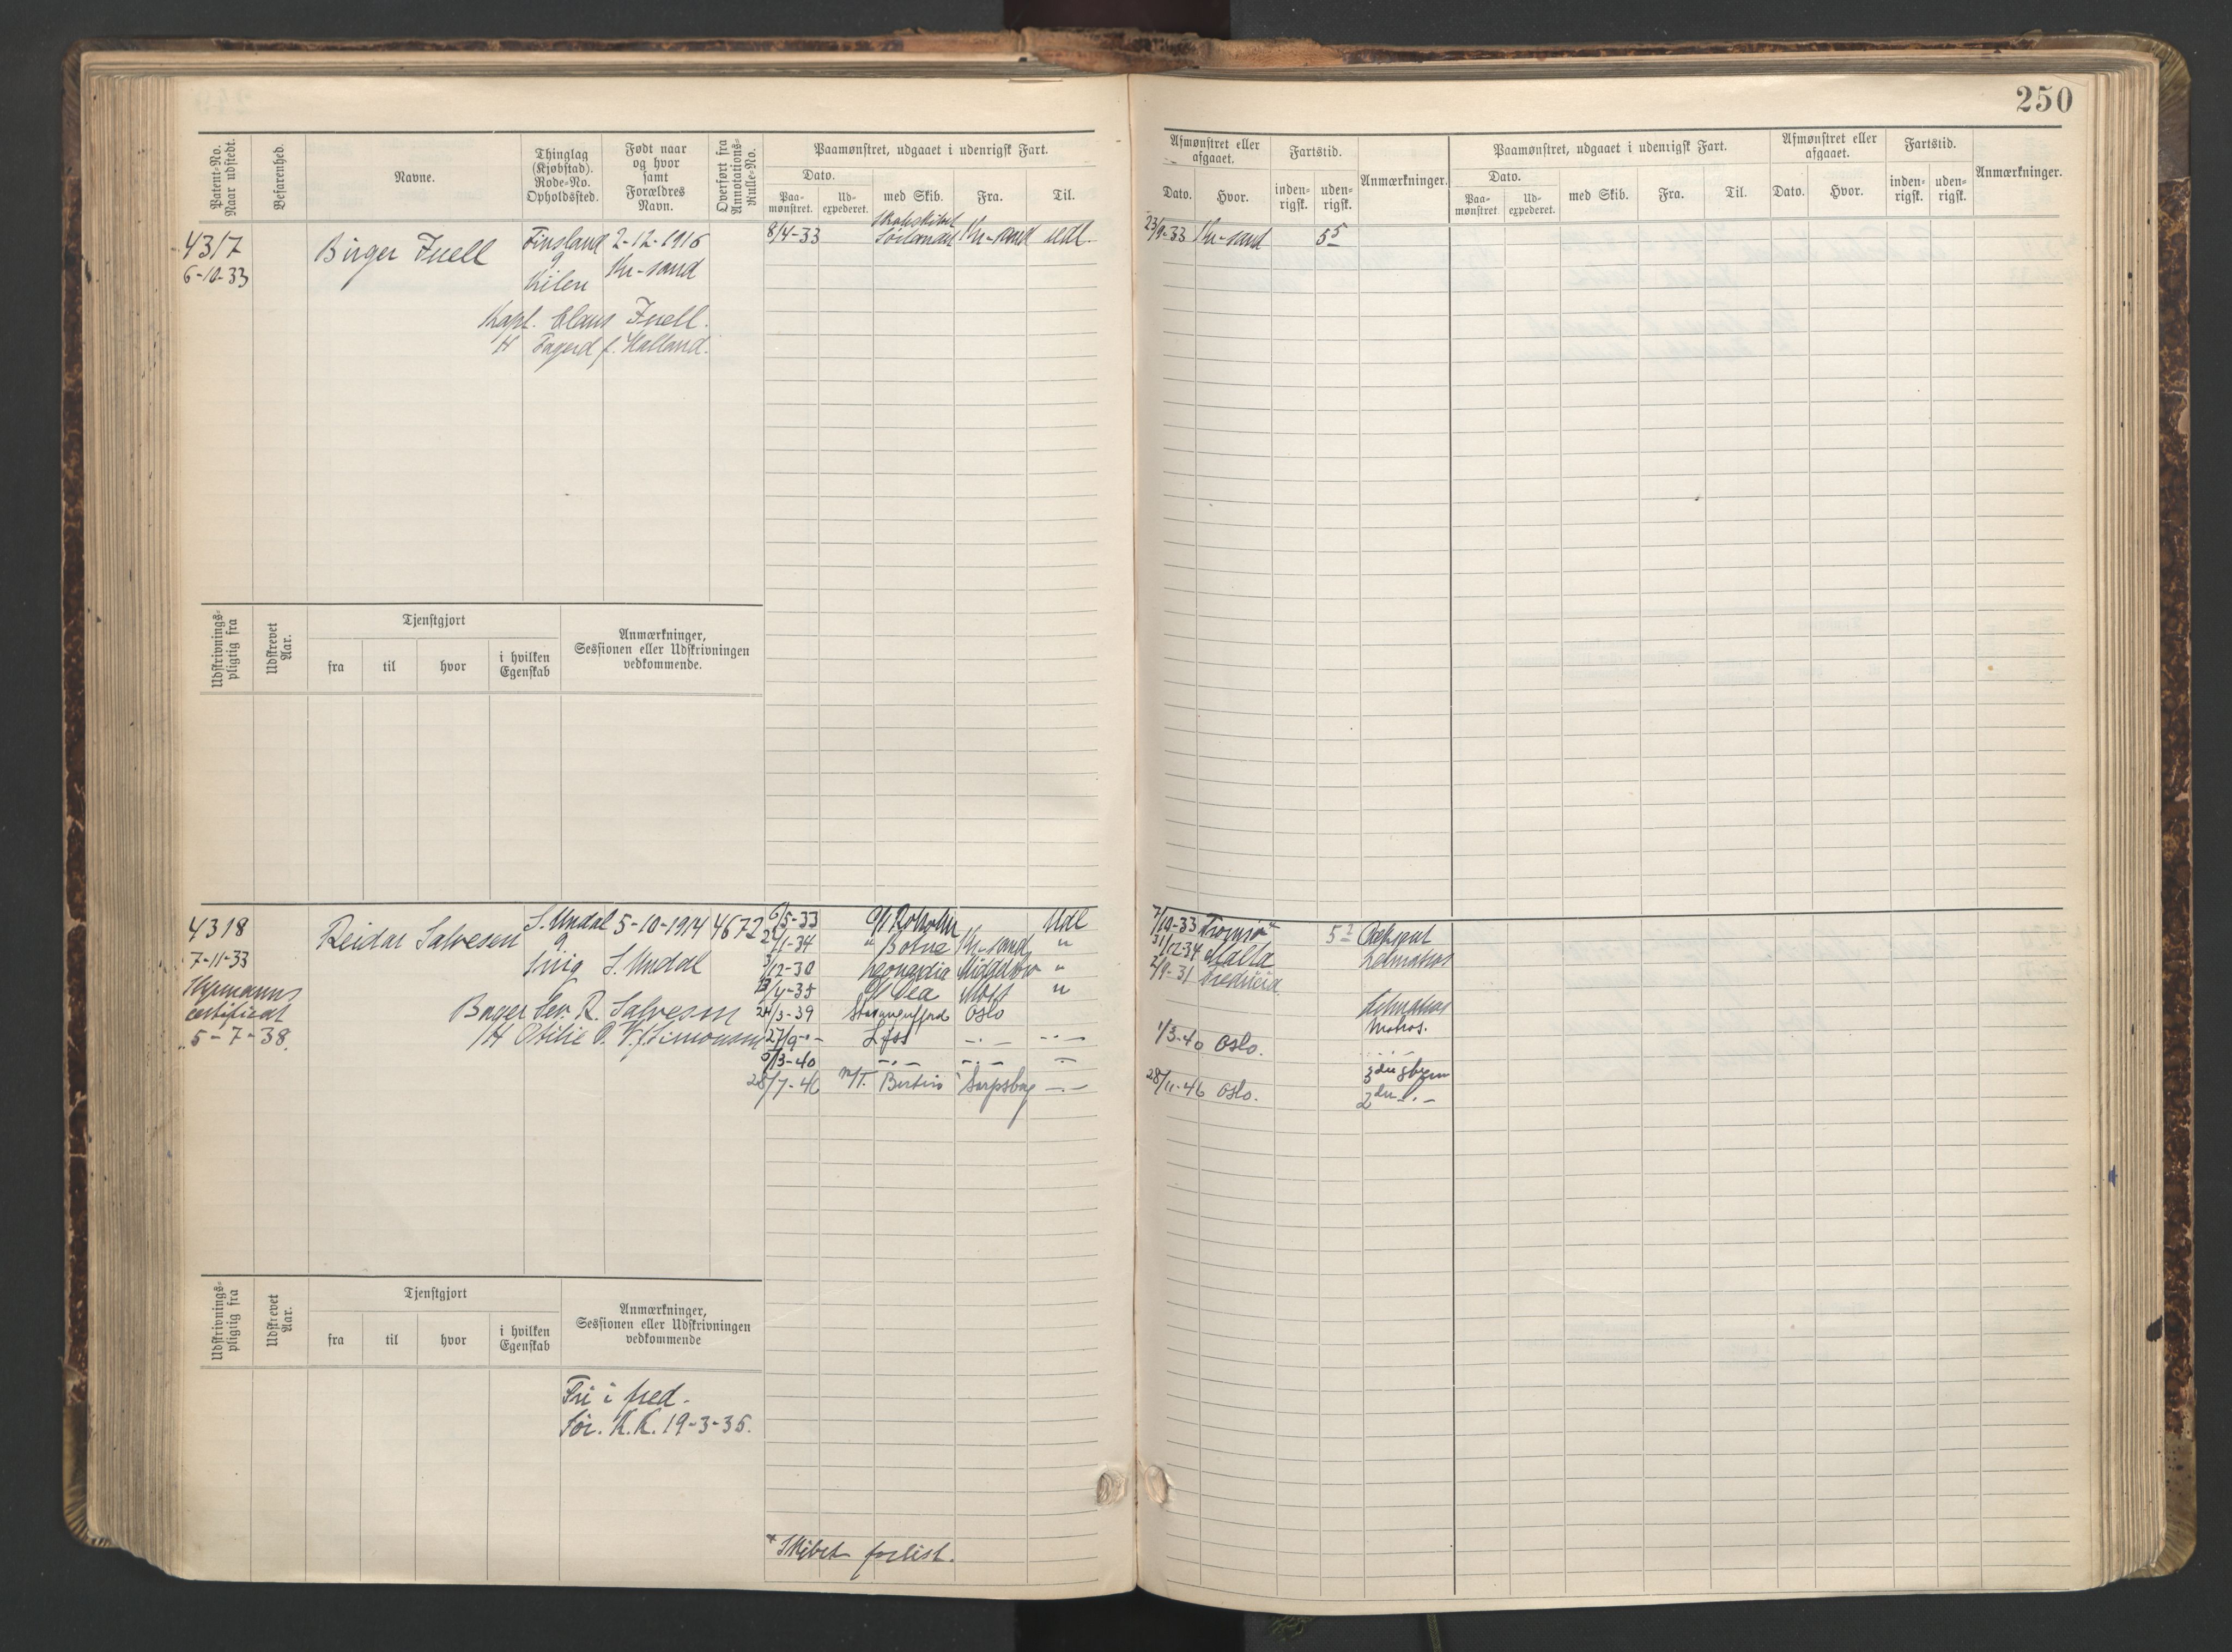 250
Patent-No. Naar udstedt.
Befarenhed.
Navne.
Thinglag (Kjøbstad). Rode-No. Opholdssted.
Født naar og hvor samt Forældres Navn.
Overført fra Annotations-Rulle-No.
Paamønstret, udgaaet i udenrigsk Fart.
Dato.
Paa-mønstret.
Ud-expederet.
med Skib.
Fra.
Til.
Afmønstret eller afgaaet.
Dato.
Hvor.
Fartstid.
inden-rigsk.
uden-rigsk.
Anmærkninger.
Paamønstret, udgaaet i udenrigsk Fart.
Dato.
Paa-mønstret
Ud-expederet.
med Skib.
Fra.
Til.
Afmønstret eller afgaaet.
Dato.
Hvor.
Fartstid.
inden-rigsk.
uden-rigsk.
Anmærkninger.
4317
6-10-33
Birger Juell
Finsland
9
Kilen
2-12-1916
Kr-sand
Kapt. Claus Juell.
H Fagerd f. Halland.
8/4-33 Skoleskibet Sørlandet Kr-sand udl.
23/9-33 Kr-sand 5 5
Udskrivnings-pligtig fra
Udskrevet Aar.
Tjenstgjort
fra
til
hvor
i hvilken Egenskab
Anmærkninger, Sessionen eller Udskrivningen vedkommende.
4318
7-11-33
Styrmanns
certifikat
5-7-38.
Reidar Salvesen
S. Undal
9
5-10-1914
S. Undal
4672
Salvesen
6/5-33 Udl
2/1-34 " Botne Kr-sand "
3/12-30 Leonardia "
/4-35 Moss "
24/3-39 Stavangerfjord Oslo
27/9 -"- Lfos -"- -"-
5/3-40 -"- -"- -
28/7-46 M/T. Sarpsborg -"-
7/10-33 5
31/12-34 Malta Letmatros
2/9-31 Fredricia
Letmatros
Matros.
1/3-40 Oslo.
28/11-46 Oslo.
Udskrivnings-pligtig fra
Udskrevet Aar.
Tjenstgjort
fra
til
hvor
i hvilken Egenskab
Anmærkninger, Sessionen eller Udskrivningen vedkommende
Fri i fred.
Sør. K.K. 19-3-35.
* Skibet forlist.